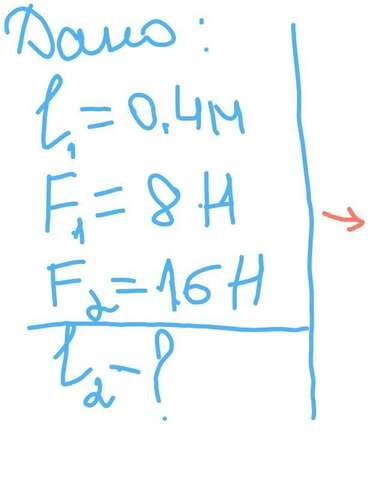 Дано:
l₁ = 0.4м
F₁ = 8 Н
F₂ = 16 Н
l₂ - ?